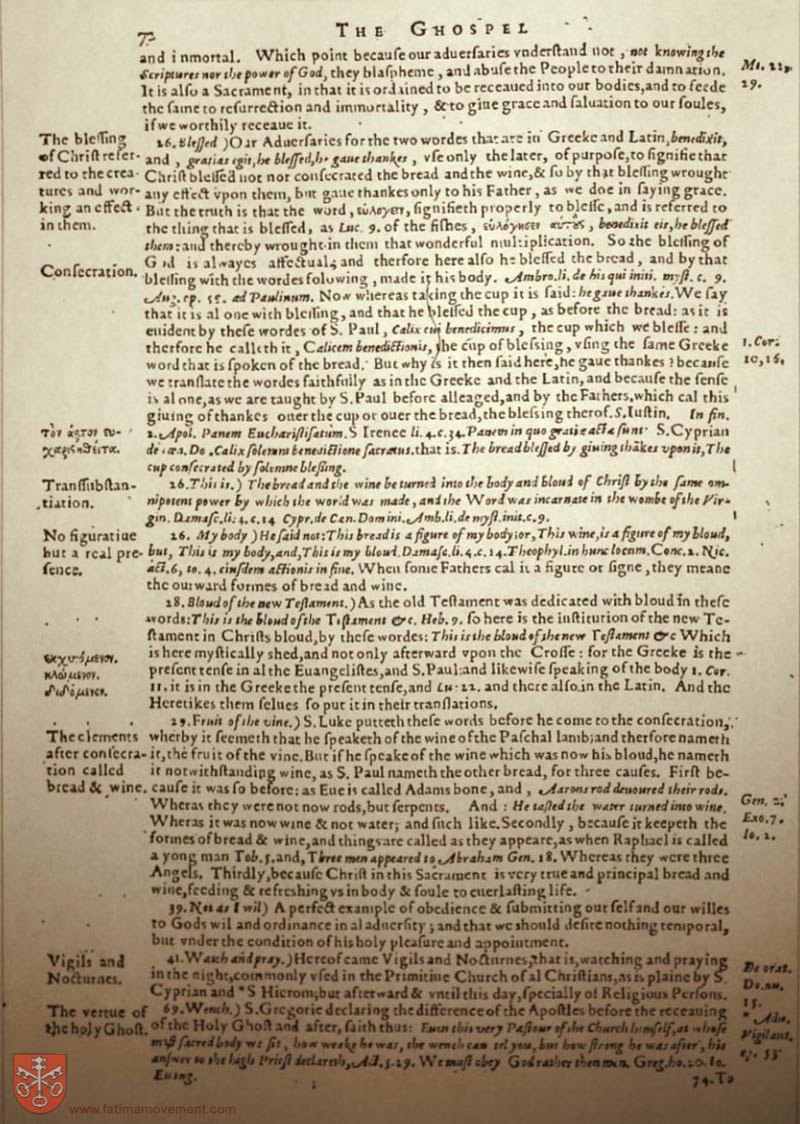 72
THE GHOSPEL
and inmortal. Which point becauſe our aduerſaries vnderſtand not, not knowing the
Scriptures nor the power of God, they blaſpheme, and abuſe the People to their damnation.
Mt. 22,
29.
It is alſo a Sacrament, in that it is ordained to be receaued into our bodies, and to feede
the ſame to reſurrection and immortality, & to giue grace and ſaluation to our ſoules,
if we worthily receaue it.
The bleſſing
of Chriſt refer-
red to the crea-
tures and wor-
king an effect
in them.
26. Bleſſed ) Our Aduerſaries for the two wordes that are in Greeke and Latin, benedixit,
and, gratias egit, he bleſſed, he gaue thankes, vſe only the later, of purpoſe, to ſignifie that
Chriſt bleſſed not nor conſecrated the bread and the wine, & ſo by that bleſſing wrought
any effect vpon them, but gaue thankes only to his Father, as we doe in ſaying grace.
But the truth is that the word, εὐλογεῖν, ſignifieth properly to bleſſe, and is referred to
the thing that is bleſſed, as Luc. 9. of the fiſhes, εὐλόγησεν αὐτοὺς, benedixit eis, he bleſſed
them: and thereby wrought in them that wonderful multiplication. So the bleſſing of
Conſecration.
God is alwayes affectual; and therfore here alſo he bleſſed the bread, and by that
bleſſing with the wordes folowing, made it his body. Ambro. li. de his qui initi. myſt. c. 9.
Aug. ep. 55. ad Paulinum. Now whereas taking the cup it is ſaid: he gaue thankes. We ſay
that it is al one with bleſſing, and that he bleſſed the cup, as before the bread: as it is
euident by theſe wordes of S. Paul, Calix cui benedicimus, the cup which we bleſſe: and
therfore he calleth it, Calicem benedictionis, the cup of bleſſing, vſing the ſame Greeke
1. Cor.
10, 16.
word that is ſpoken of the bread. But why is it then ſaid here, he gaue thankes? becauſe
we tranſlate the wordes faithfully as in the Greeke and the Latin, and becauſe the ſenſe
is al one, as we are taught by S. Paul before alleaged, and by the Fathers, which cal this
giuing of thankes ouer the cup or ouer the bread, the bleſſing therof. S. Iuſtin. In fin.
τὸν ἄρτον ευ-
χαριςηθέντα.
2. Apol. Panem Euchariſtiſatum. S Irenee li. 4. c. 34. Panem in quo gratiæ actæ ſunt. S. Cyprian
de cæn. Do. Calix ſolemni benedictione ſacratus. that is. The bread bleſſed by giuing thākes vpon it, The
cup conſecrated by ſolemne bleſſing.
Tranſſubſtan-
tiation.
26. This is. ) The bread and the wine be turned into the body and bloud of Chriſt by the ſame om-
nipotent power by which the world was made, and the Word was incarnate in the wombe of the Vir-
gin. Damaſc. li. 4. c. 14 Cypr. de Cœn. Domini. Amb. li. de myſt. init. c. 9.
No figuratiue
but a real pre-
ſence.
26. My body ) He ſaid not: This bread is a figure of my body: or, This wine, is a figure of my bloud,
but, This is my body, and, This is my bloud. Damaſc. li. 4. c. 14. Theophyl. in hunc locum. Conc. 2. Nic.
act. 6, to. 4. eiuſdem actionis in fine. When ſome Fathers cal it a figure or ſigne, they meane
the outward formes of bread and wine.
28. Bloud of the new Teſtament. ) As the old Teſtament was dedicated with bloud in theſe
words: This is the bloud of the Teſtament &c. Heb. 9. ſo here is the inſtitution of the new Te-
ſtament in Chriſts bloud, by theſe wordes: This is the bloud of the new Teſtament &c Which
ἐκχυνόμενον.
κλώμενον.
διδόμενον.
is here myſtically ſhed, and not only afterward vpon the Croſſe: for the Greeke is the
preſent tenſe in al the Euangeliſtes, and S. Paul: and likewiſe ſpeaking of the body 1. Cor.
11. it is in the Greeke the preſent tenſe, and Lu. 22. and there alſo in the Latin. And the
Heretikes them ſelues ſo put it in their tranſlations.
The elements
after conſecra-
tion called
bread & wine.
29. Fruit of the vine. ) S. Luke putteth theſe words before he come to the conſecration,
wherby it ſeemeth that he ſpeaketh of the wine of the Paſchal lamb; and therfore nameth
it, the fruit of the vine. But if he ſpeake of the wine which was now his bloud, he nameth
it notwithſtanding wine, as S. Paul nameth the other bread, for three cauſes. Firſt be-
cauſe it was ſo before: as Eue is called Adams bone, and, Aarons rod deuoured their rods.
Gen. 2.
Exo. 7.
Io. 2.
Wheras they were not now rods, but ſerpents. And: He taſted the water turned into wine.
Wheras it was now wine & not water; and ſuch like. Secondly, becauſe it keepeth the
formes of bread & wine, and things are called as they appeare, as when Raphael is called
a yong man Tob. 5. and, Three men appeared to Abraham Gen. 18. Whereas they were three
Angels. Thirdly, becauſe Chriſt in this Sacrament is very true and principal bread and
wine, feeding & refreſhing vs in body & ſoule to euerlaſting life.
39. Not as I wil ) A perfect example of obedience & ſubmitting our ſelf and our willes
to Gods wil and ordinance in al aduerſity; and that we ſhould deſire nothing temporal,
but vnder the condition of his holy pleaſure and appointment.
Vigils and
Nocturnes.
41. Watch and pray. ) Hereof came Vigils and Nocturnes, that is, watching and praying
in the night, commonly vſed in the Primitiue Church of al Chriſtians, as is plaine by S.
Cyprian and * S Hierom; but afterward & vntil this day, ſpecially of Religious Perſons.
De orat.
Do. nu.
15.
* Adu.
Vigilant.
ep. 53
The vertue of
the holy Ghoſt.
69. Wench. ) S. Gregorie declaring the difference of the Apoſtles before the receauing
of the Holy Ghoſt and after, ſaith thus: Euen this very Paſtour of the Church himſelf, at whoſe
moſt ſacred body we ſit, how weake he was, the wench can tel you, but how ſtrong he was after, his
anſwer to the high Prieſt declareth, Act. 5. 29. We muſt obey God rather then men. Greg. ho. 20. in
Euang.
74. To
www.fatimamovement.com